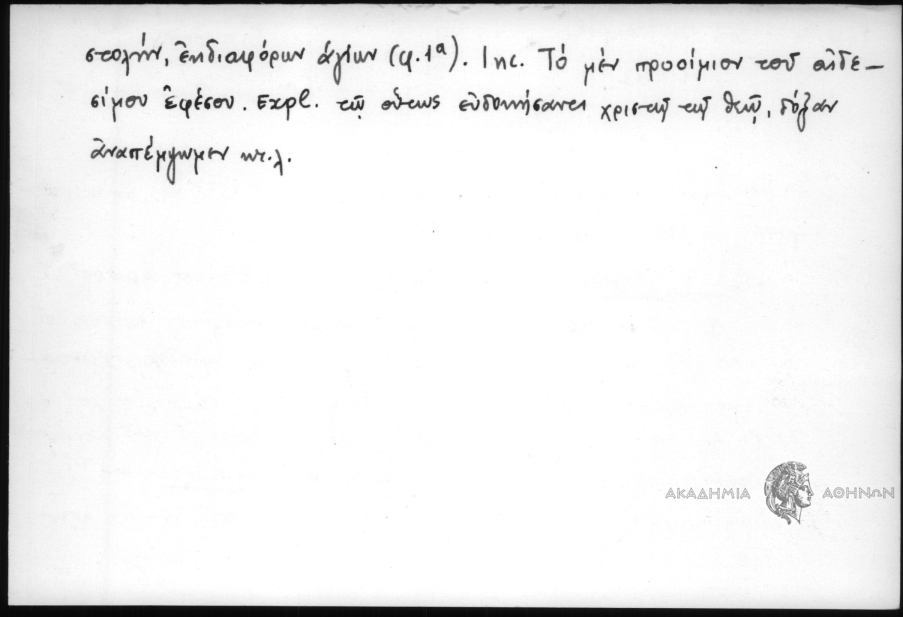 στολήν, ἐκδιαφόρων ἁγίων (φ. 1α). Inc. Τό μέν προοίμιον τοῦ αἰδε–
σίμου ἐφέσου. Expl. τῷ οὕτως εὐδοκήσαντι χριστῷ τῷ θεῷ, δόξαν
ἀναπέμψωμεν κτ.λ.
ΑΚΑΔΗΜΙΑ ΑΘΗΝΩΝ